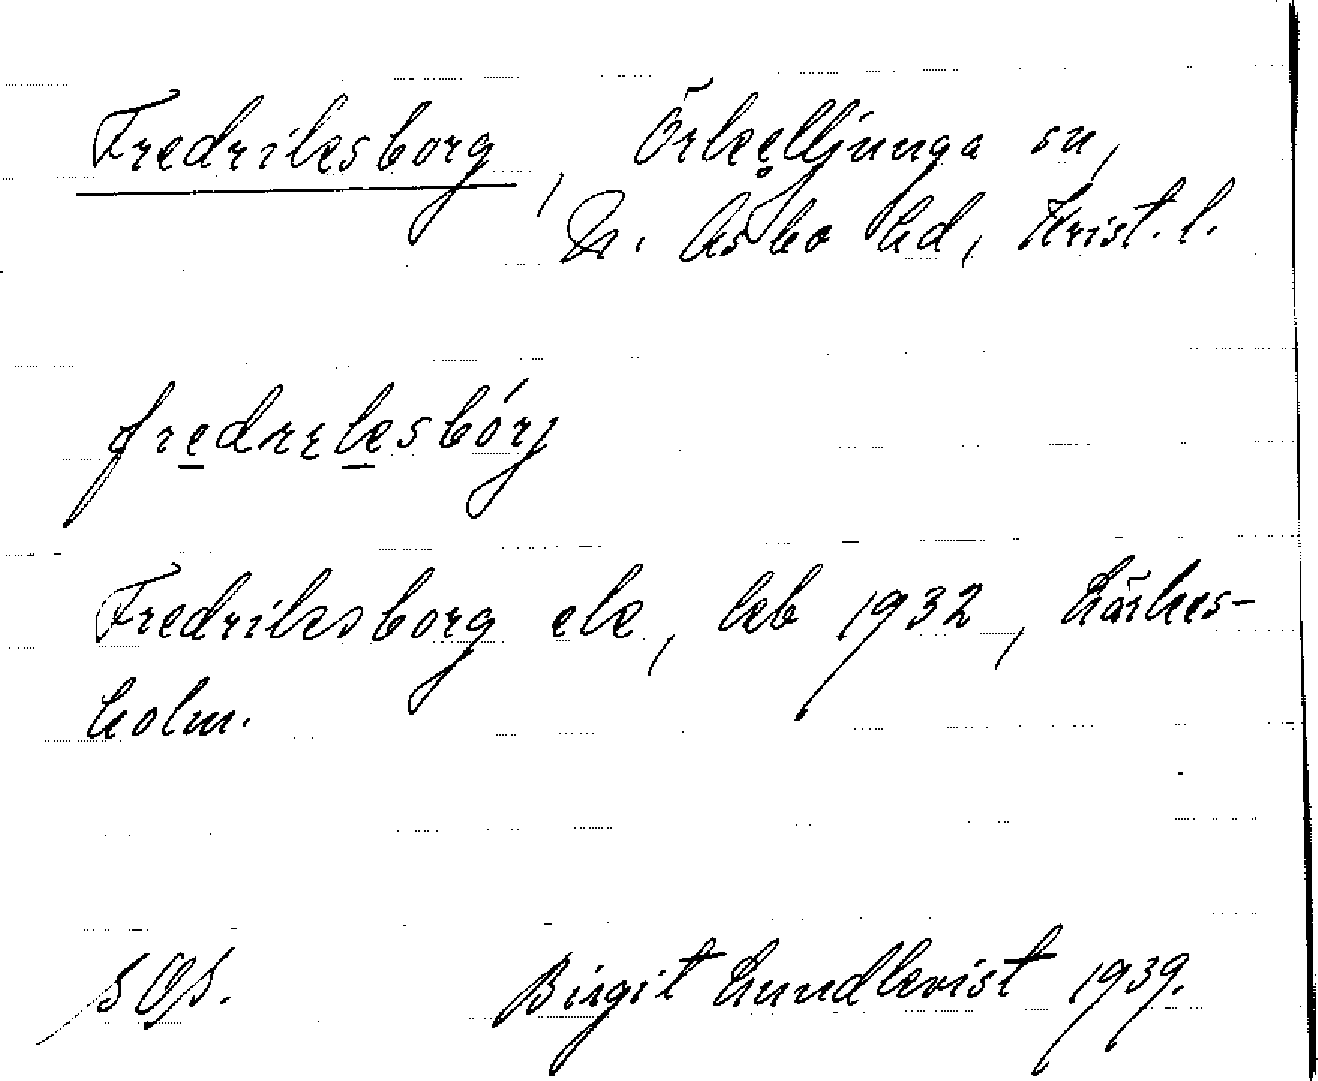 Fredriksborg, Örkelljunga sn,
N. Åsbo hd, Krist. l.
fredrɛksbórj
Fredriksborg ek, kb 1932, Lärkes-
holm.
SOS. Birgit Lundkvist 1939.